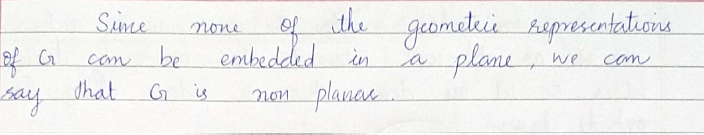 Since none of the geometric representations
of G can be embedded in a plane, we can
say that G is non planar.